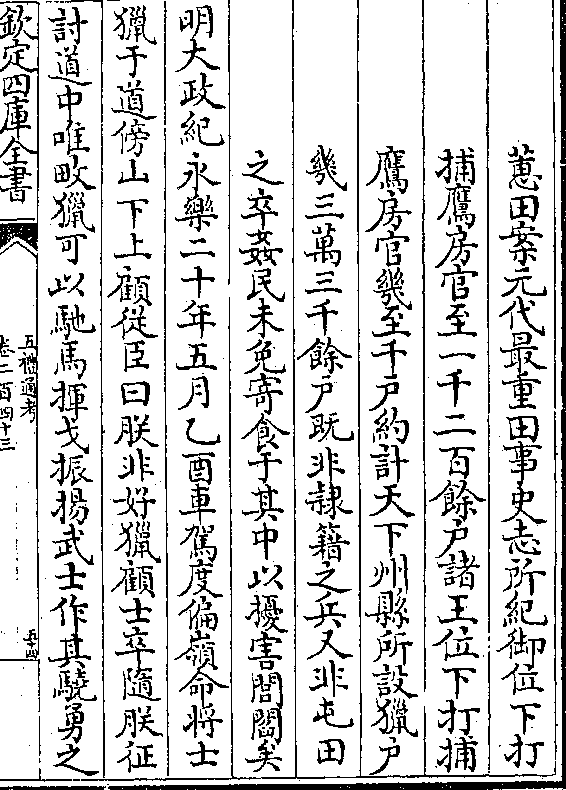 蕙田案元代最重田事史志所紀御位下打
捕鷹房官至一千二百餘戶諸王位下打捕
鷹房官幾至千戶約計天下州縣所設獵戶
幾三萬三千餘戶既非隷籍之兵又非屯田
之卒姦民未免寄食于其中以擾害閭閻矣
明大政紀永樂二十年五月乙酉車駕度偏嶺命將士
獵于道傍山下上顧從臣曰朕非好獵顧士卒隨朕征
討道中唯畋獵可以馳馬揮戈振揚武士作其驍勇之
欽定四庫全書
五禮通考
卷二百四十三